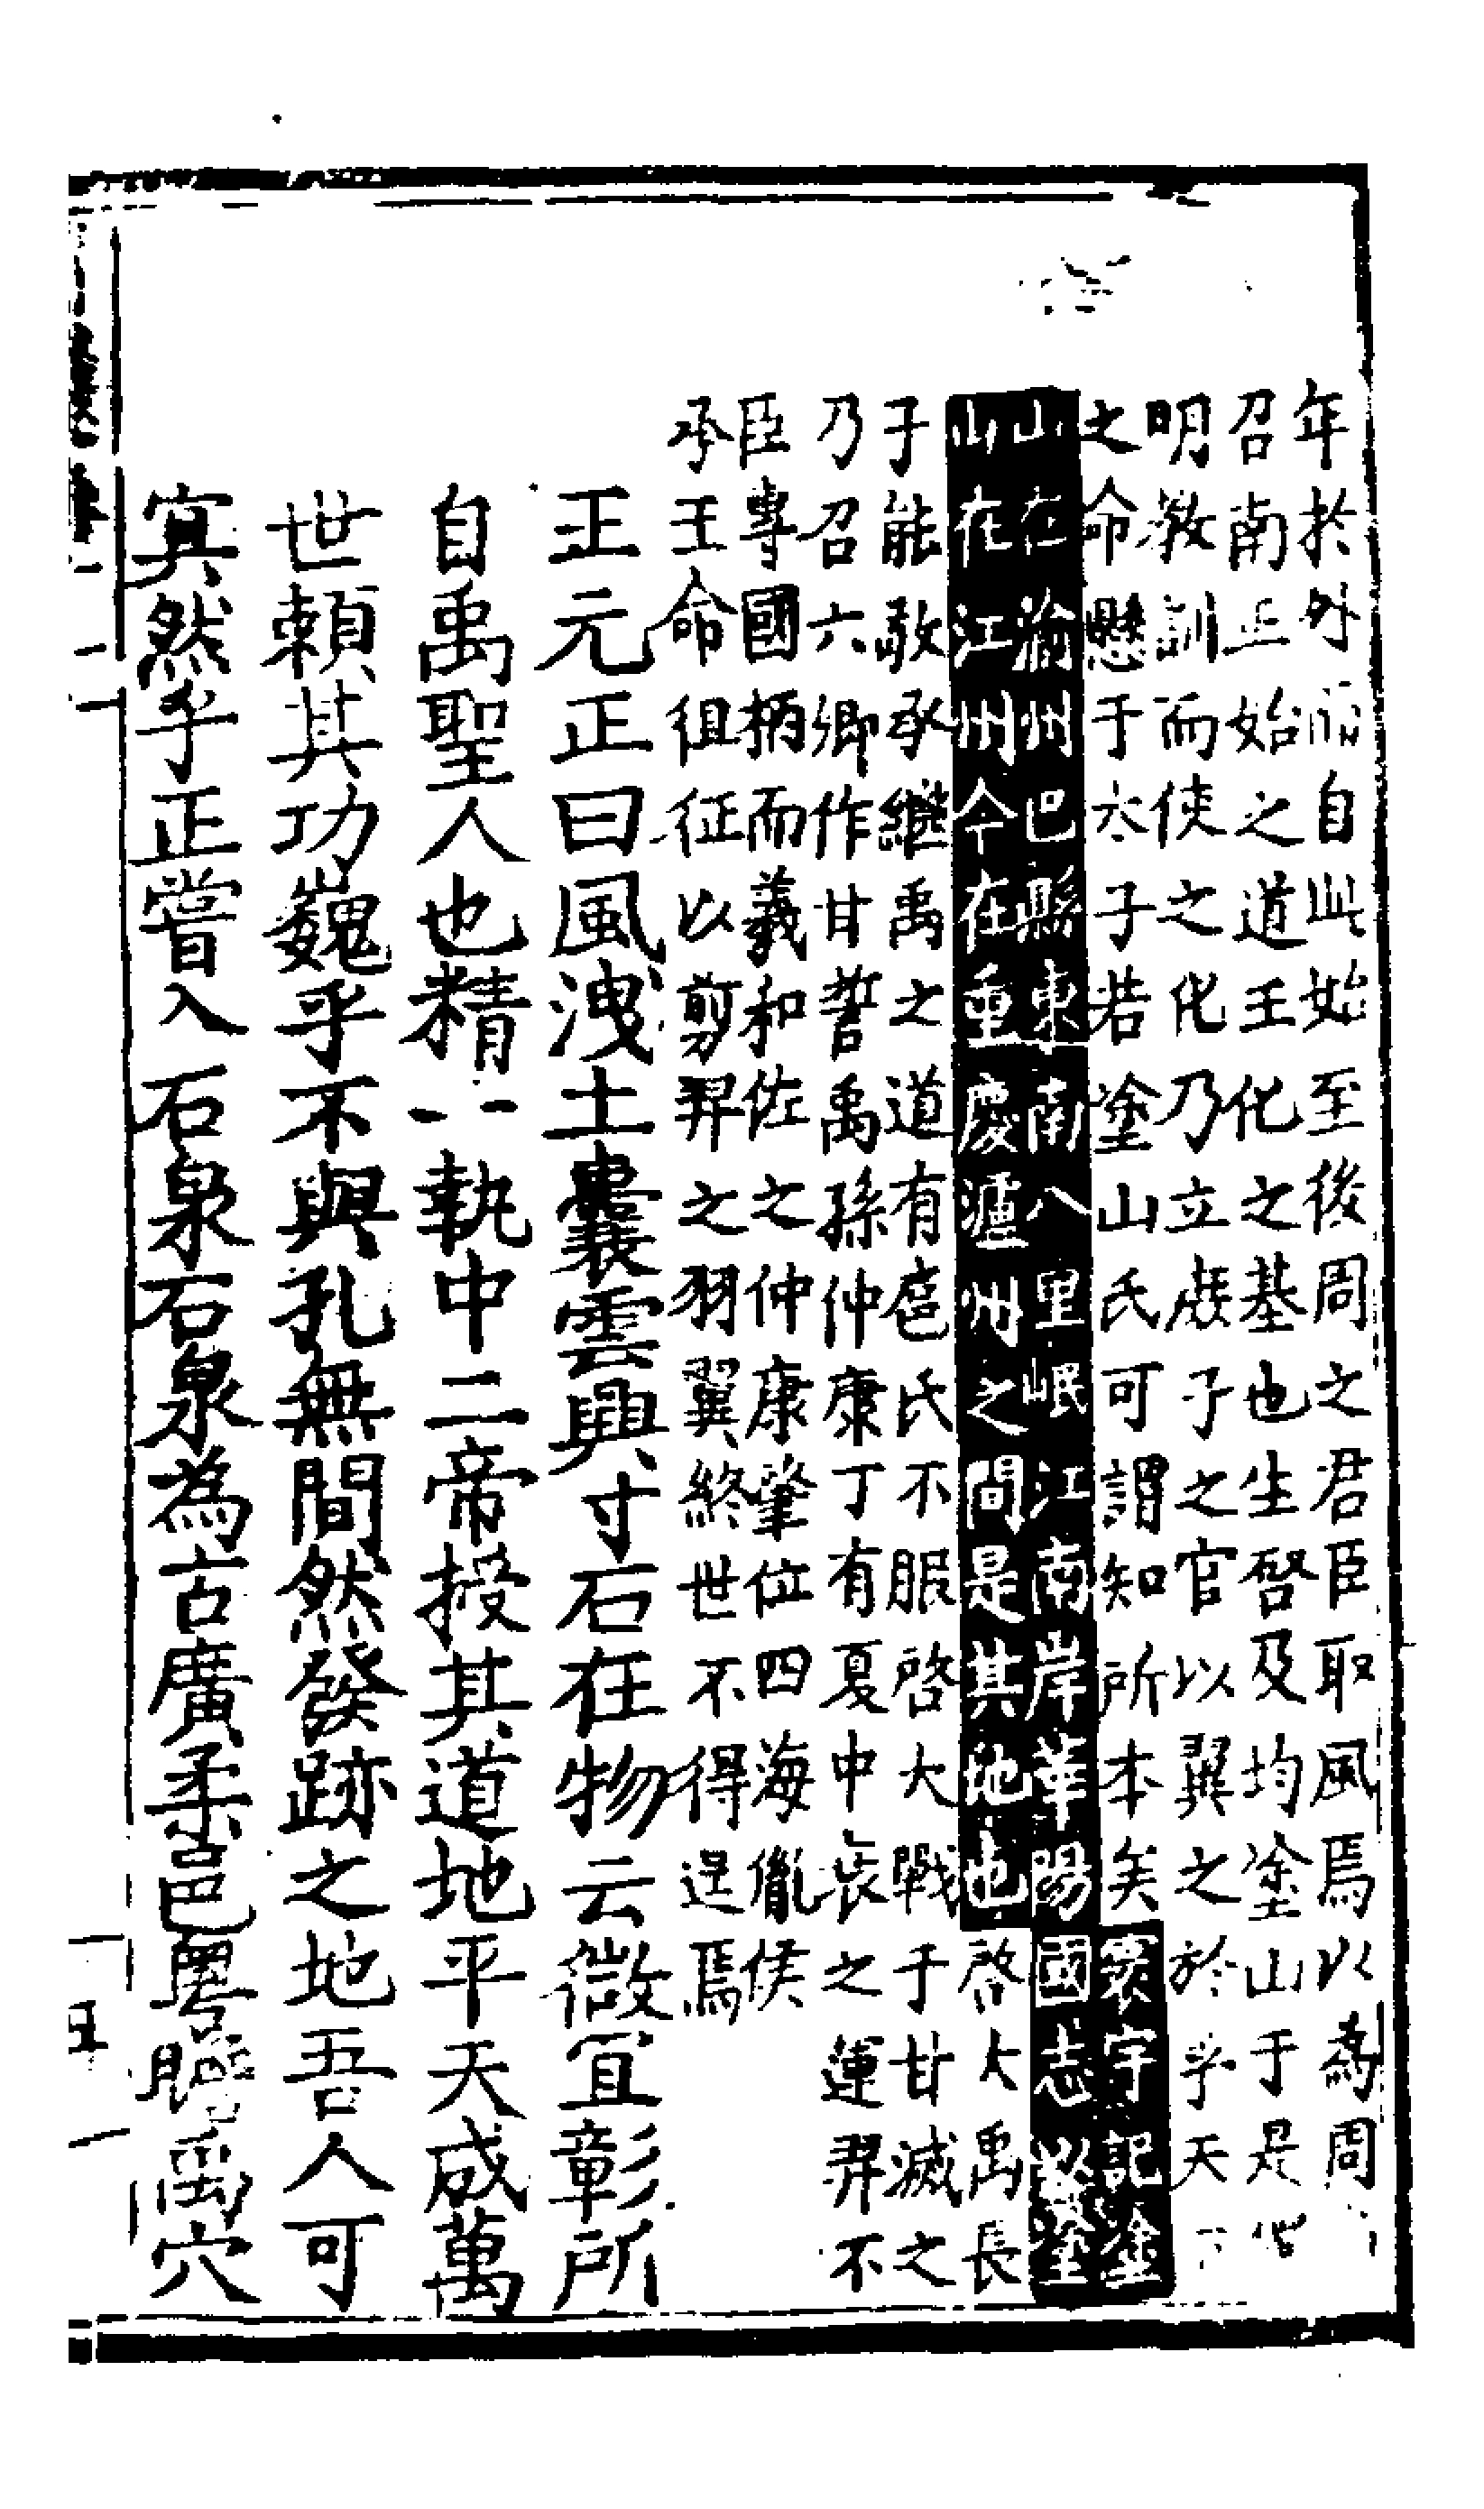 年於外而自此始至後周之君臣取風焉以為周
召南正始之道王化之基也生啓及均塗山于是
明教訓而使之化乃立庶子之官以翼之於乎天下
之命懸于太子若塗山氏可謂知所本矣寰宇記塗
山在渝州巴縣東南八里岷江南岸華陽國志以塗
山在江州今在重慶瀘州之間是其地也啓大禹長
子能敬承繼禹之道有扈氏不服啓大戰于甘滅之
乃召六卿作甘誓禹孫仲康丁有夏中衰之運羿不
臣專國柄而羲和佐之仲康肇位四海胤侯
承王命徂征以剪羿之羽翼終世不得逞焉
正元正曰風洩土囊雲興寸石在物云微宜彰所
自禹聖人也精一執中二帝授其道地平天成萬
世賴其功巍乎不與孔無間然發跡之地吾人可
寘然乎正嘗入石泉石泉為古廣柔邑粵瞻禹穴